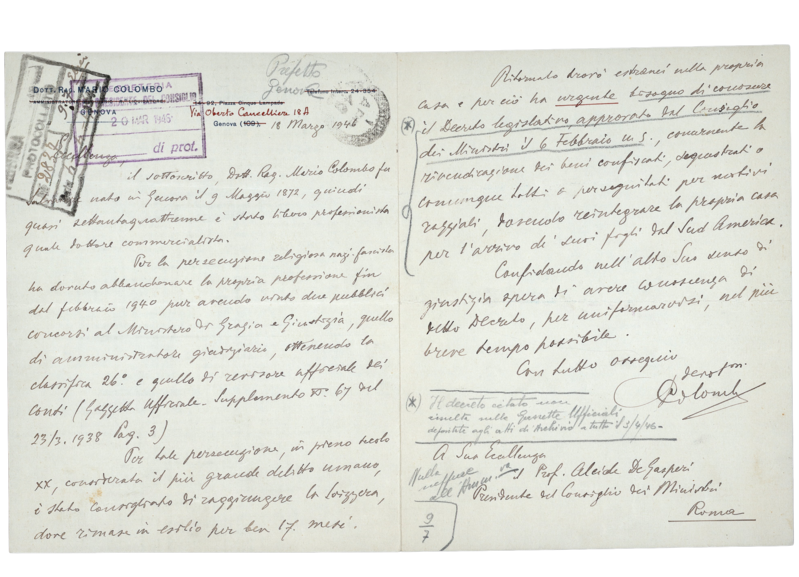 DOTT. RAG. MARIO COLOMBO
GENOVA
20 MAR 1946
di prot.
Prefetto
Genova
Telefono Interno 24-354
14-22, Piazza Cinque Lampade
Via Oberto Cancelliere 18A
Genova (109)
18 Marzo 1946
Eccellenza
il sottoscritto, Dott. Rag. Mario Colombo fu
nato in Genova il 9 Maggio 1872, quindi
quasi settantaquattrenne è stato libero professionista
quale dottore commercialista.
Per la persecuzione religiosa nazi-fascista
ha dovuto abbandonare la propria professione fin
dal febbraio 1940 pur avendo vinto due pubblici
concorsi al Ministero di Grazia e Giustizia, quello
di amministratore giudiziario, ottenendo la
classifica 26° e quello di revisore ufficiale dei
conti (Gazzetta Ufficiale - Supplemento N° 67 del
23/3. 1938 Pag. 3)
Per tale persecuzione, in pieno secolo
XX, considerata il più grande delitto umano,
è stato consigliato di raggiungere la Svizzera,
dove rimase in esilio per ben 17 mesi.
Ritornato trovò estranei nella propria
casa e perciò ha urgente bisogno di conoscere
il Decreto legislativo approvato dal Consiglio
dei Ministri il 6 Febbraio u. s., concernente la
rivendicazione dei beni confiscati, sequestrati o
comunque tolti a perseguitati per motivi
razziali, dovendo reintegrare la propria casa
per l'arrivo de' suoi figli dal Sud America.
Confidando nell'alto Suo senso di
giustizia spera di avere conoscenza di
detto Decreto, per uniformarvisi, nel più
breve tempo possibile.
Con tutto ossequio
devotmo
Colombo
(*) Il decreto citato non
risulta nelle Gazzette Ufficiali
depositate agli atti di Archivio a tutto il 3/4/46
A Sua Eccellenza
il Prof. Alcide De Gasperi
Presidente del Consiglio dei Ministri
Roma
Nulla
neppure
9
7